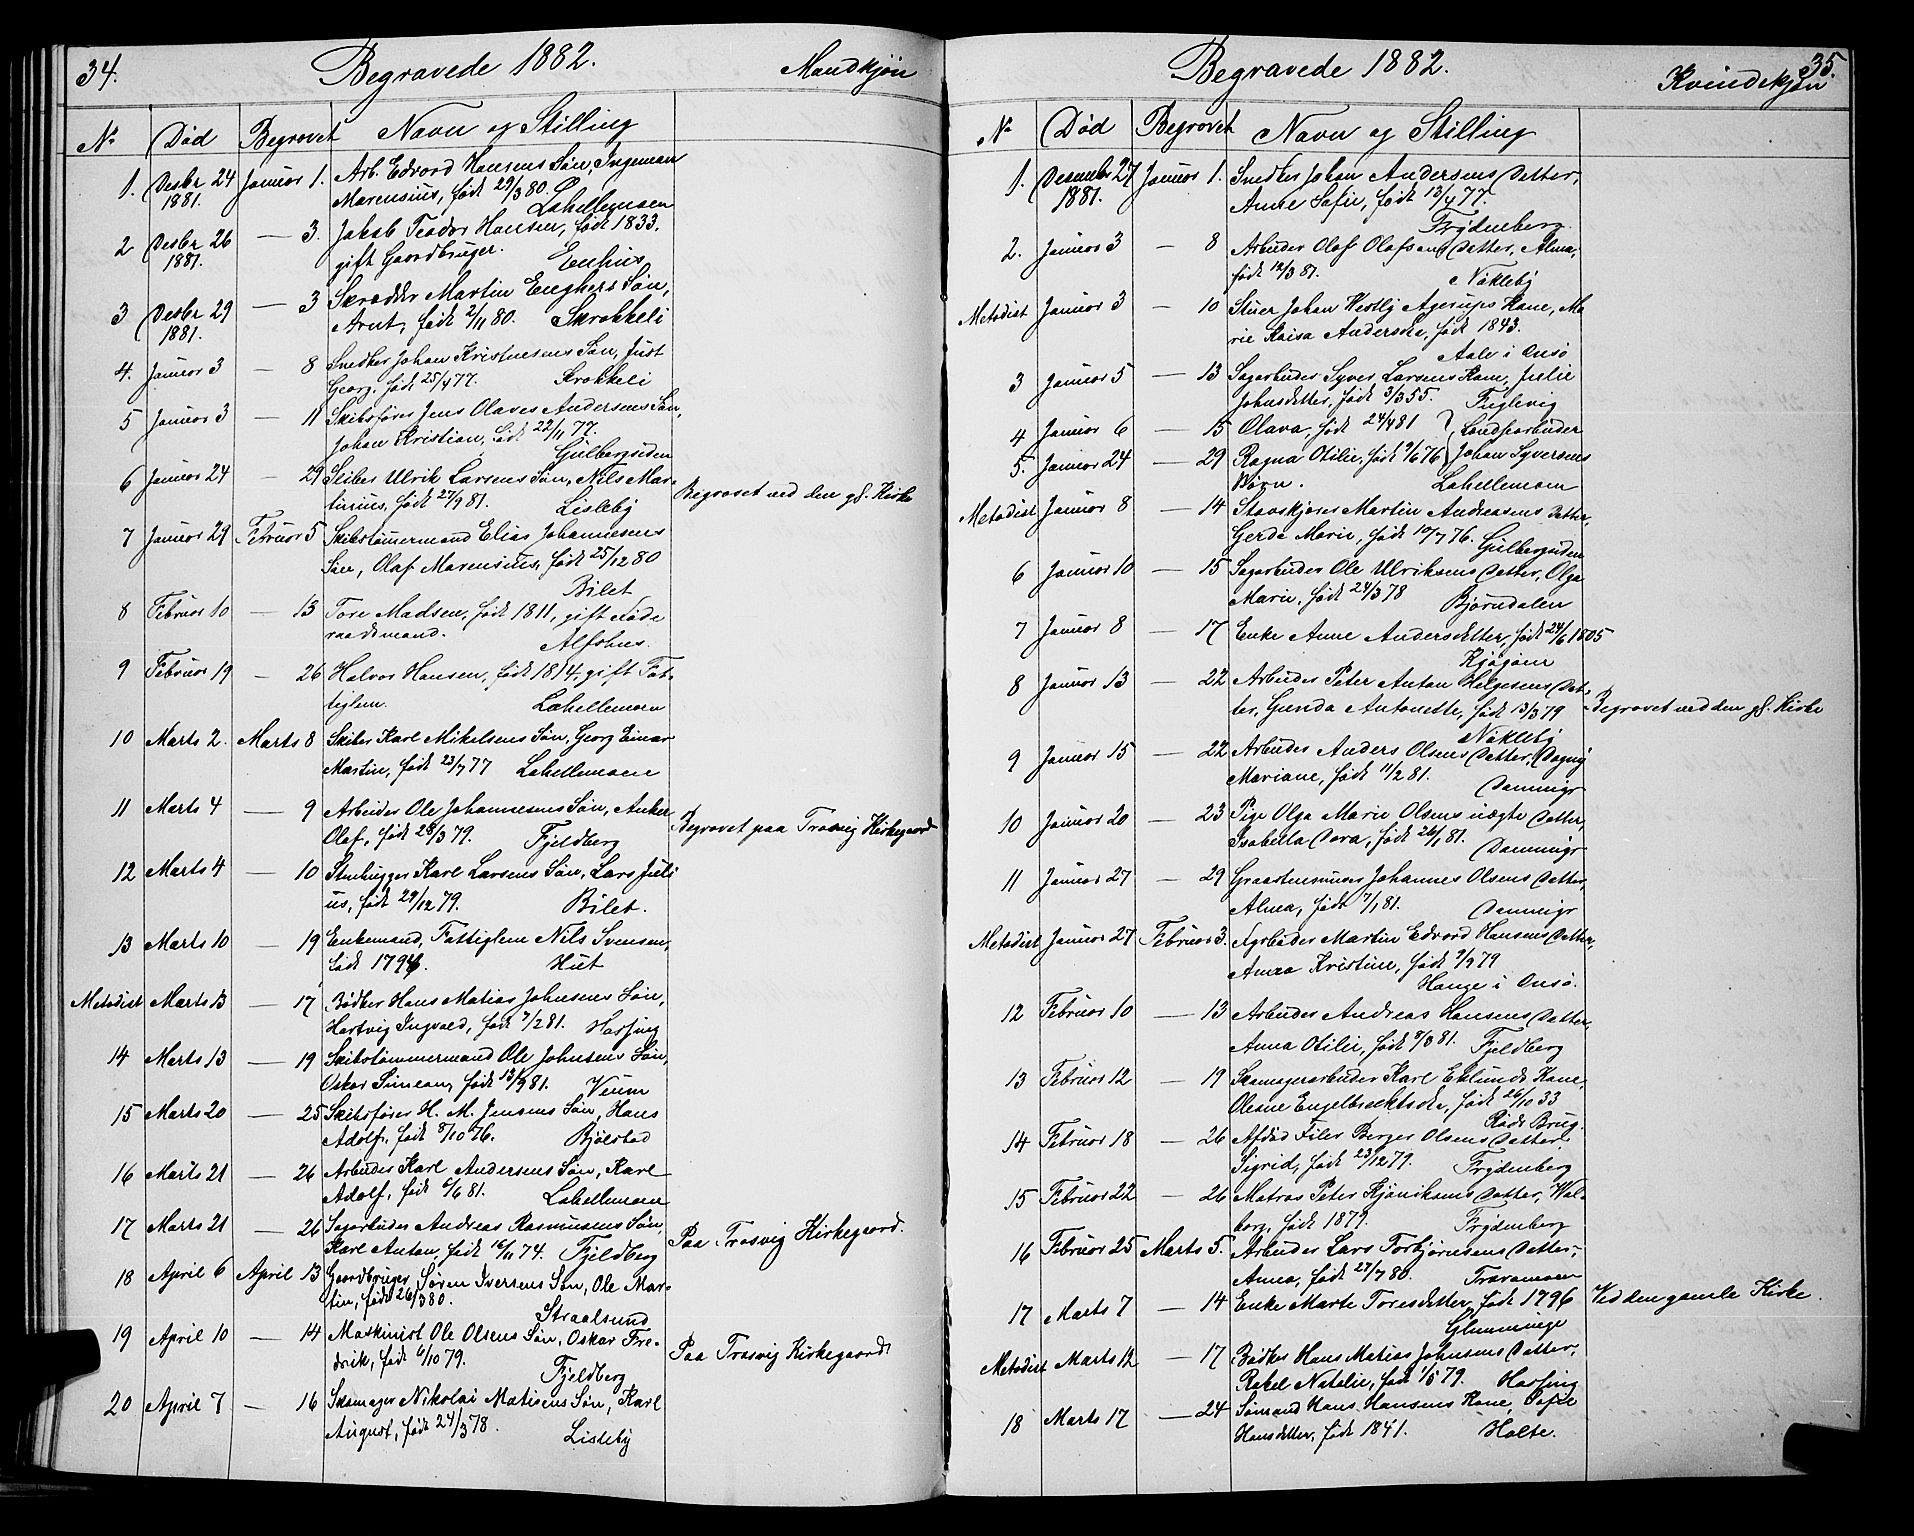 34.
Begravede 1882.
Mandkjøn
No Død Begravet Navn og Stilling
1. Desbr 24 Januar 1. Arb. Edvard Hansens Søn, Ingeman
1881. Marensius, født 29/3 80. Lahellemoen
2 Desbr 26 — 3. Jakob Teodor Hansen, født 1833.
1881. gift Gaardbruger. Enhus
3 Desbr 29 — 3 Skrædder Martin Enghers Søn,
1881. Arnt, født 2/11 80. Skrokkeli
4. Januar 3 — 8 Snedker Johan Kristnesens Søn, Just
Georg, født 25/4 77. Krokkeli
5 Januar 3 — 11 Skibsfører Jens Olaves Andersens Søn,
Johan Kristian, født 22/11 77.
Gulbergsiden
6 Januar 24 — 29 Sliber Ulrik Larsens Søn, Nils Mar-
tinius, født 27/9 81. Lisleby Begravet ved den gl. Kirke
7 Januar 29 Februar 5 Skibstømmermand Elias Johannesens
Søn, Olaf Marensius, født 25/12 80
Bilet
8 Februar 10 — 13 Tore Madsen, født 1811, gift Føde
raadsmand. Alfshus.
9 Februar 19 — 26 Halvor Hansen, født 1814, gift Fat-
tiglem. Lahellemoen
10 Marts 2. Marts 8 Sliber Karl Mikelsens Søn, Georg Einar
Martin, født 23/7 77 Lahellemoen
11 Marts 4 — 9 Arbeider Ole Johannesens Søn, Anker
Olaf, født 28/3 79. Fjeldberg Begravet paa Trosvig Kirkegaard
12 Marts 4 — 10 Stenhugger Karl Larsens Søn, Lars Juli
us, født 29/12 79. Bilet.
13 Marts 10 — 19 Enkemand, Fattiglem Nils Svensen,
født 1796. Hut
Metodist Marts 13 — 17 Bødker Hans Matias Johnsens Søn,
Hartvig Ingvald, født 7/2 81. Hassing
14 Marts 13 — 19 Skibstømmermand Ole Johnsens Søn,
Oskar Simeon, født 13/9 81. Veum
15 Marts 20 — 25 Skibsfører H. M. Jensens Søn, Hans
Adolf, født 8/10 76. Bjølstad
16 Marts 21 — 26 Arbeider Karl Andersens Søn, Karl
Adolf, født 6/6 81. Lahellemoen
17 Marts 21 — 26 Sagarbeider Andreas Rasmussens Søn,
Karl Anton, født 16/11 74. Fjeldberg Paa Trosvig Kirkegaard.
18 April 6 April 13 Gaardbruger Søren Iversens Søn, Ole Mar-
tin, født 26/3 80.
Straalsund
19 April 10 — 14 Maskinist Ole Olsens Søn, Oskar Fre-
drik, født 6/10 79. Paa Trosvig Kirkegaard
Fjeldberg
20 April 7 — 16 Skomager Nikolai Matisens Søn, Karl
August, født 24/3 78. Lisleby
35.
Begravede 1882.
Kvindekjøn
No Død Begravet Navn og Stilling
1. Desember 27 Januar 1. Snedker Johan Andersens Datter,
1881. Anne Sofie, født 13/4 77.
Frydenberg
2. Januar 3 — 8 Arbeider Olaf Olafsens Datter, Alma,
født 12/3 81. Nøkleby
Metodist Januar 3 — 10 Stuer Johan Westly Agerups Kone, Ma
rie Kaisa Andersdr, født 1843.
Aale i Onsø
3 Januar 5 — 13 Sagarbeider Syver Larsens Kone, Julie
Johnsdetter, født 3/3 55. Fuglevig
4 Januar 6 — 15 Olava, født 24/4 81 } Landsarbeider
5. Januar 24 — 29 Ragna Otilie, født 9/6 76 Johan Syversens
Børn. Lahellemoen
Metodist Januar 8 — 14 Stavskjører Martin Andreasens Datter,
Gerda Marie, født 19/7 76. Gulbergsiden
6 Januar 10 — 15 Sagarbeider Ole Ulriksens Datter, Olga
Marie, født 24/3 78 Bjørndalen
7 Januar 8 — 17 Enke Anne Andersdetter, født 24/6 1805
Kjøgøen
8 Januar 13 — 22 Arbeider Peter Anton Helgesens Dat-
ter, Gunda Antonette, født 13/3 79 Begravet ved den gl. Kirke
Nøkleby
9 Januar 15 — 22 Arbeider Anders Olsens Datter, Dagny
Mariane, født 11/2 81.
Dammigr
10 Januar 20 — 23 Pige Olga Marie Olsens uægte Datter,
Isabella Dora, født 26/1 81. Dammigr
11 Januar 27 — 29 Graastensmurer Johannes Olsens Datter,
Alma, født 7/1 81. Dammigr
Metodist Januar 27 Februar 3. Agrbeider Martin Edvard Hansens Datter,
Anna Kristine, født 7/9 79
Hauge i Onsø.
12 Februar 10 — 13 Arbeider Andreas Hansens Datter,
Anna Otilie, født 8/3 81. Fjeldberg
13 Februar 12 — 19 Skomagerarbeider Karl Eklunds Kone,
Olesne Engelbrecktsdr, født 26/10 33
Røds Brug.
14 Februar 18 — 26 Afdød Filer Berger Olsens Datter,
Sigrid, født 23/12 79. Frydenberg
15 Februar 22 — 26 Matros Peter Kjøniksens Datter, Wal-
borg, født 1879. Frydenberg
16 Februar 25 Marts 5. Arbeider Lars Torbjørnsens Datter,
Anna, født 27/7 80. Traramoen
17 Marts 7 — 14 Enke Marte Toresdetter, født 1796 Ved den gamle Kirke.
Glemminge
Metodist Marts 12 — 17 Bødker Hans Matias Johnsens Datter,
Rakel Natalie, født 1/5 79. Hassing
18 Marts 17 — 24 Sømand Hans Hansens Kone, Sofie
Hansdetter, født 1841. Holte.